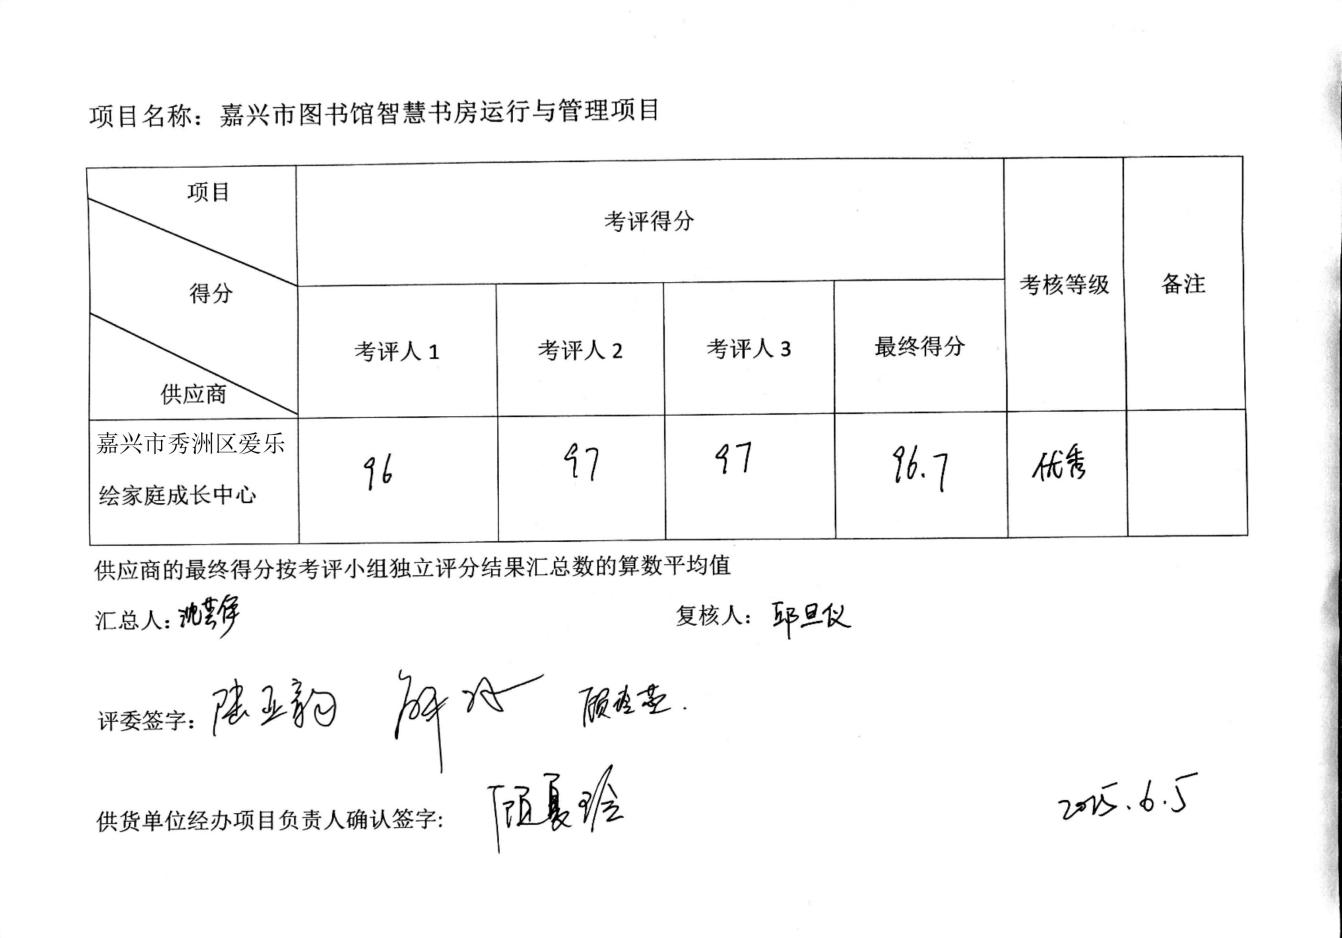 项目名称：嘉兴市图书馆智慧书房运行与管理项目
项目
得分
供应商
考评得分
考核等级
备注
考评人 1
考评人 2
考评人 3
最终得分
嘉兴市秀洲区爱乐
绘家庭成长中心
96
97
97
96.7
优秀
供应商的最终得分按考评小组独立评分结果汇总数的算数平均值
汇总人：沈芸
复核人：邱旦仪
评委签字：陆亚韵
供货单位经办项目负责人确认签字： 顾夏玲
2025.6.5